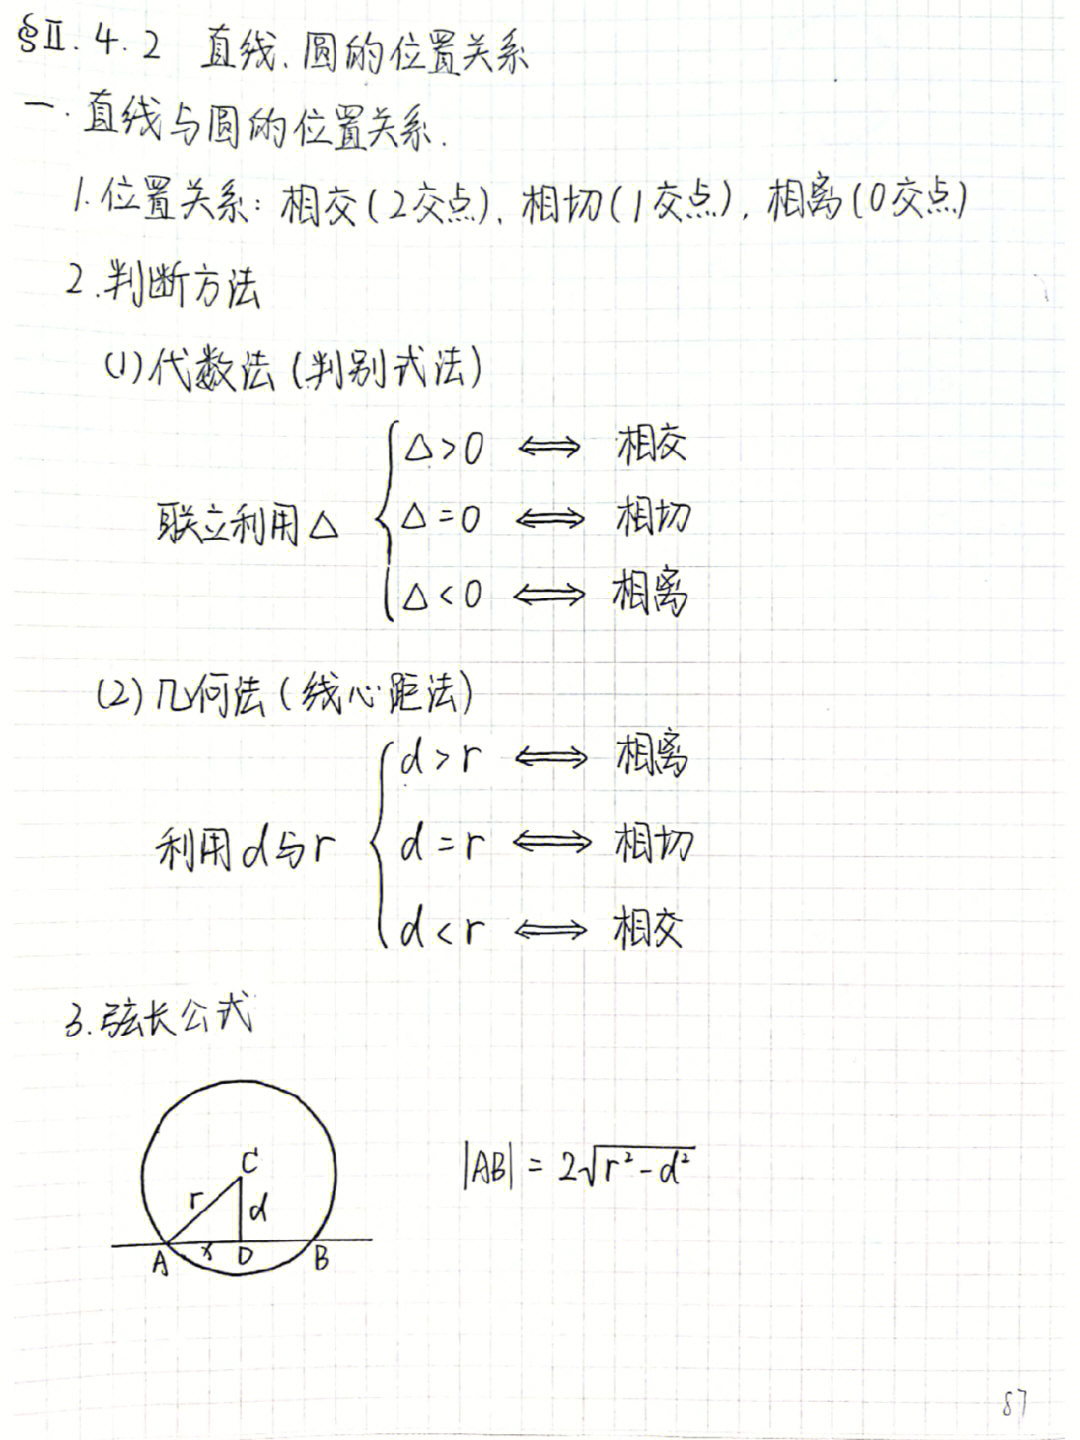 §Ⅱ.4.2 直线、圆的位置关系
一.直线与圆的位置关系.
1.位置关系:相交(2交点),相切(1交点),相离(0交点)
2.判断方法
(1)代数法(判别式法)
△>0 ⟺ 相交
联立利用△ △=0 ⟺ 相切
△<0 ⟺ 相离
(2)几何法(线心距法)
d>r ⟺ 相离
利用d与r d=r ⟺ 相切
d<r ⟺ 相交
3.弦长公式
C
r d
|AB|=2√(r²-d²)
A x D B
87